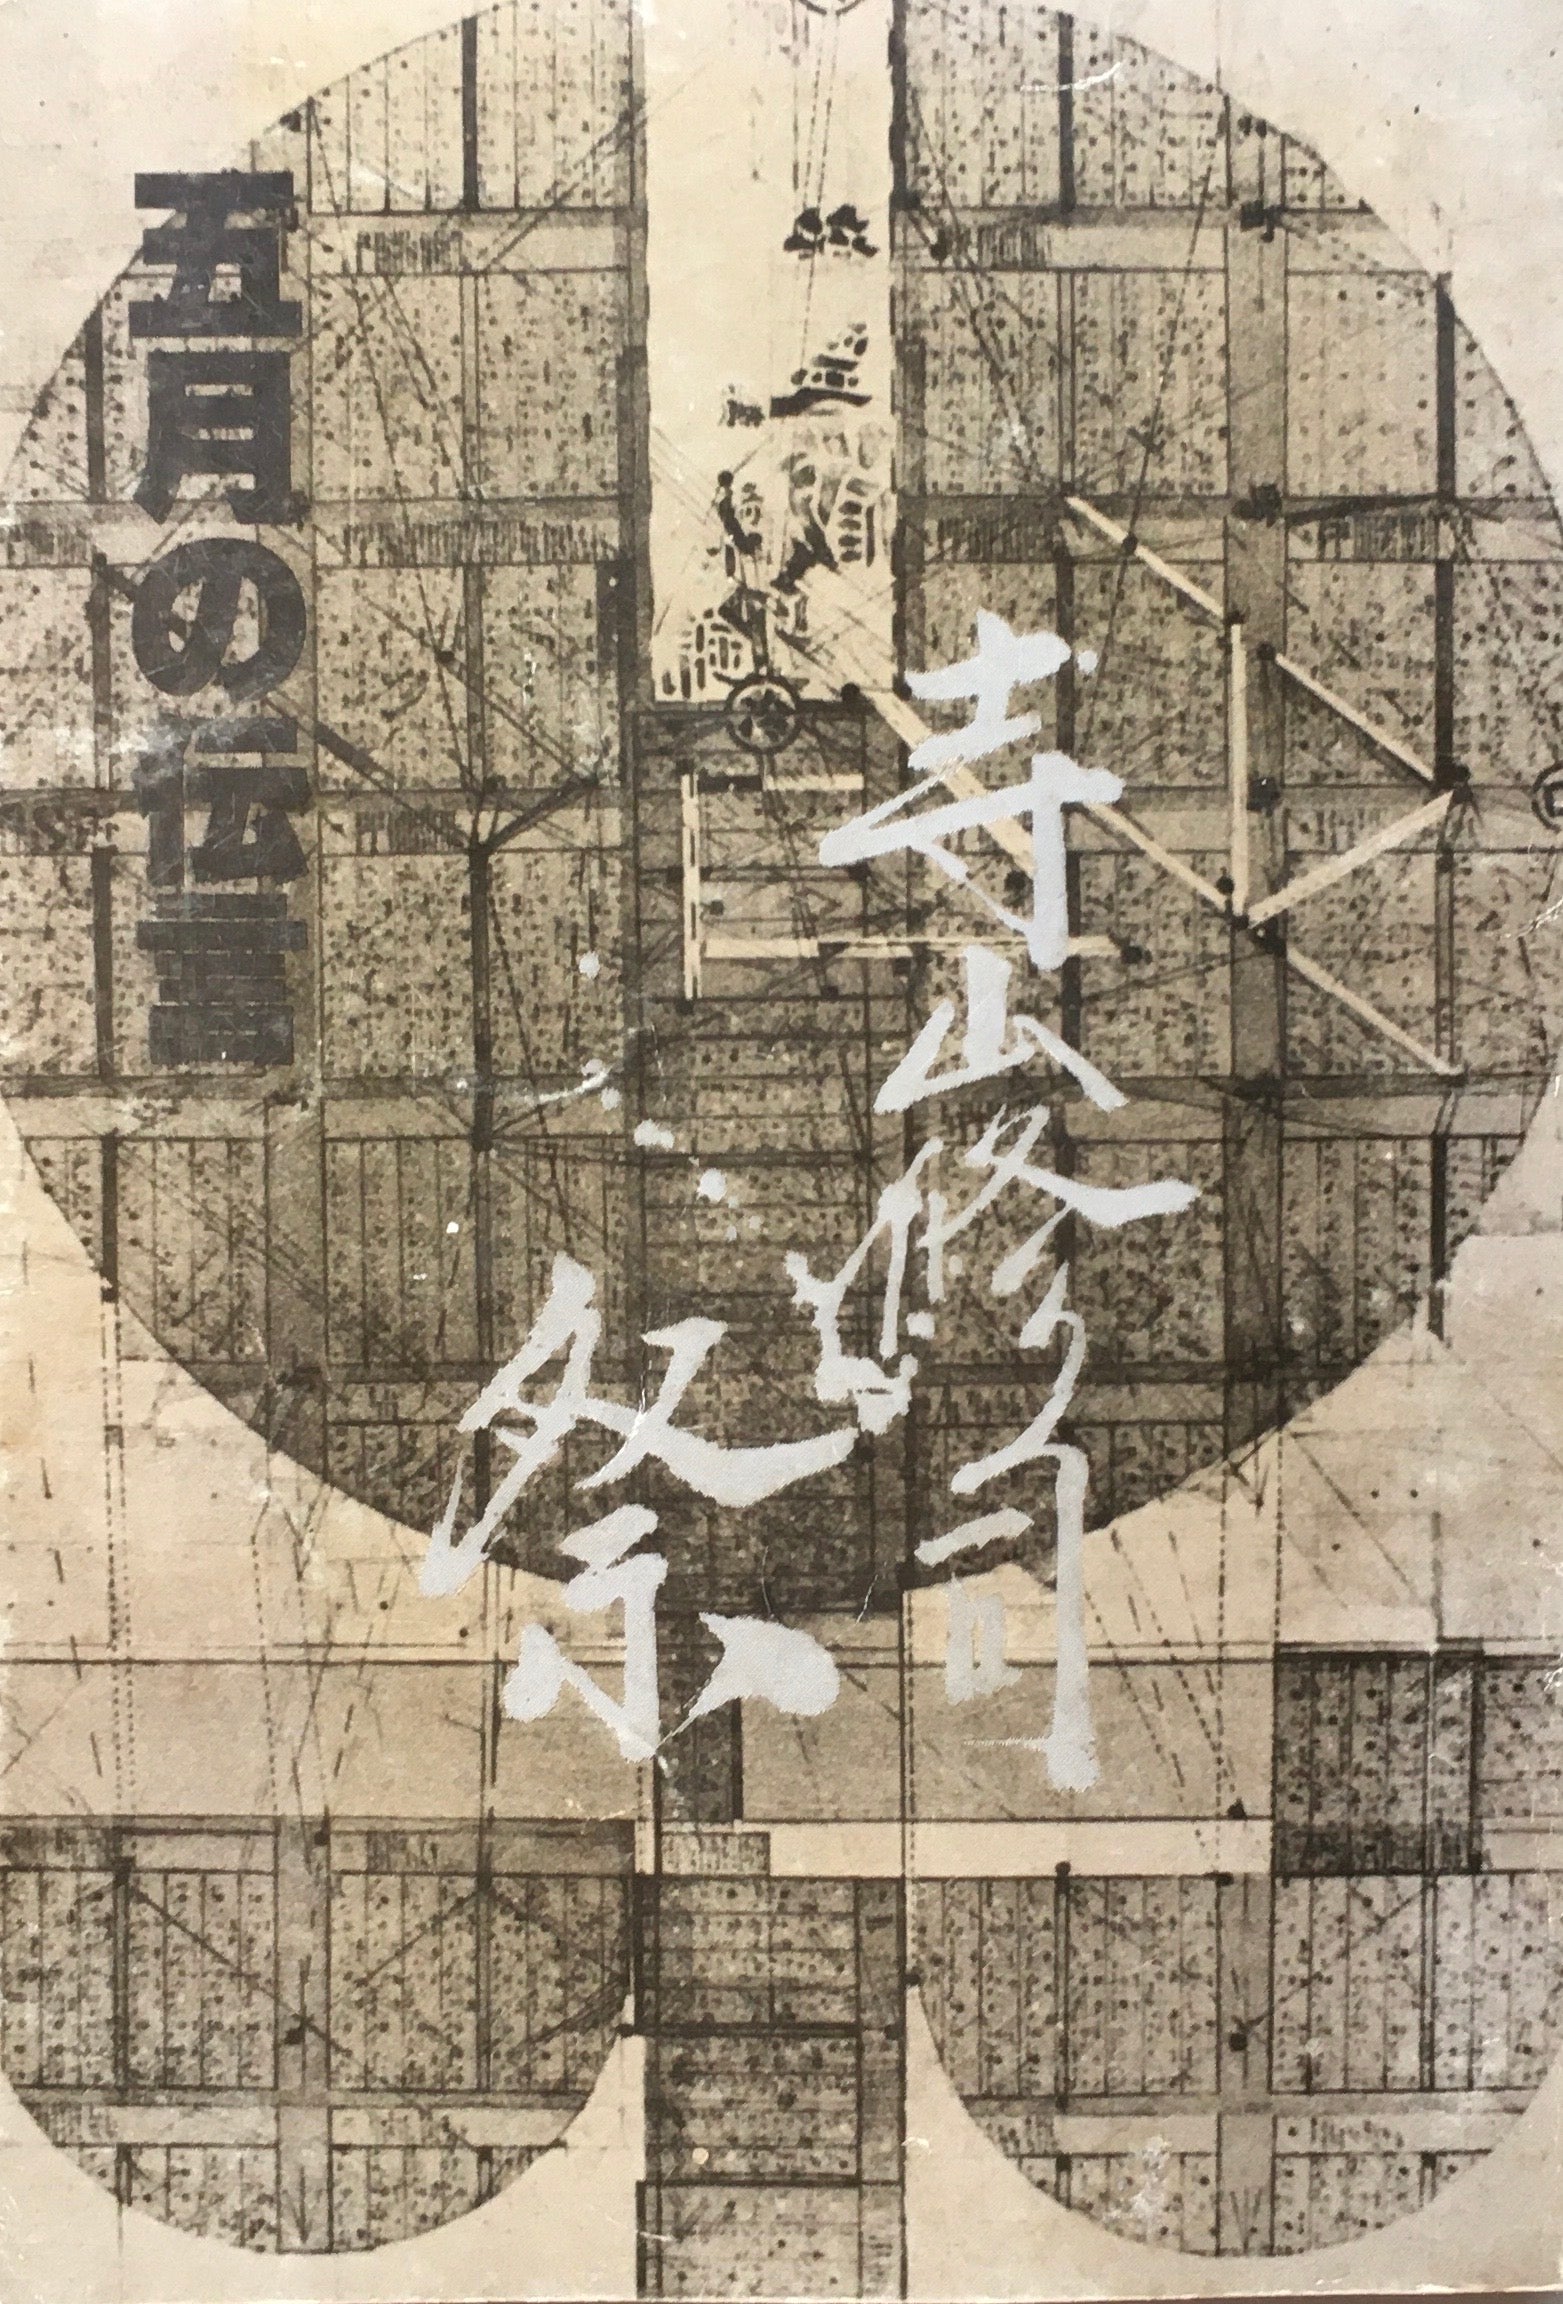 寺山修司
祭
五月の伝言